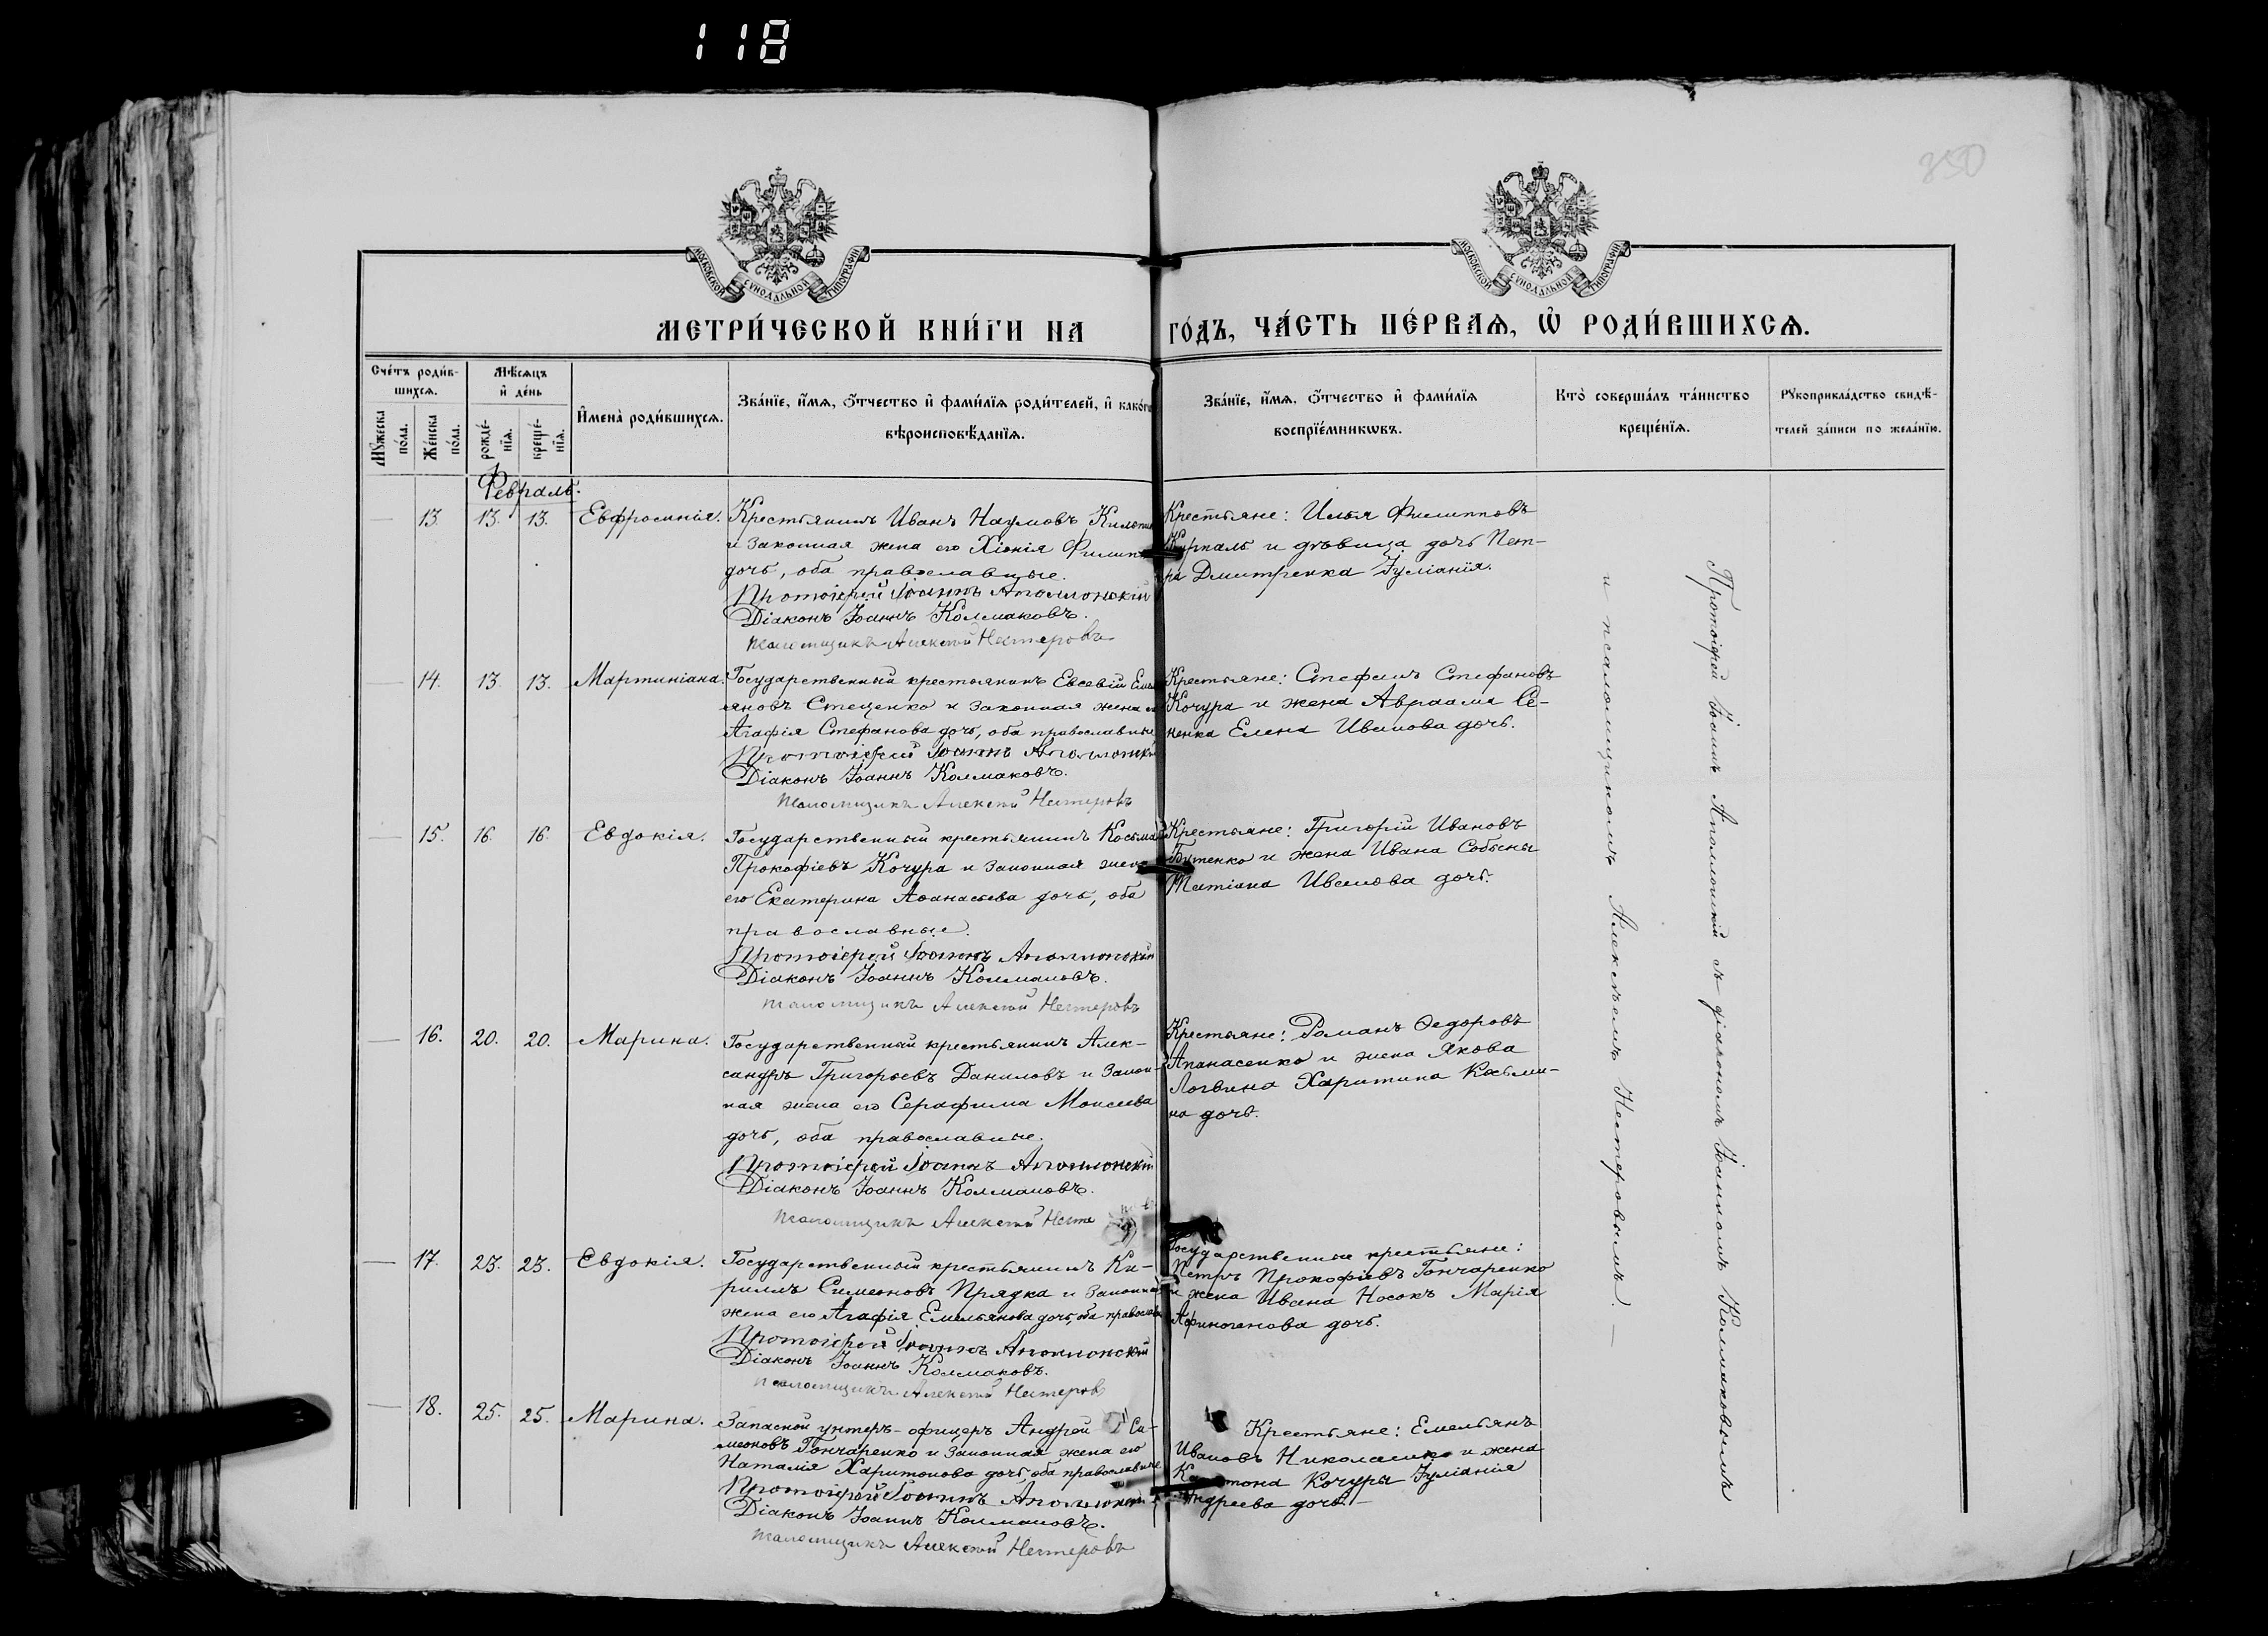 118
350
МОСКОВСКОЙ СѴНОДАЛЬНОЙ ТИПОГРАФІИ
МОСКОВСКОЙ СѴНОДАЛЬНОЙ ТИПОГРАФІИ
МЕТРИ́ЧЕСКОЙ КНИ́ГИ НА
ГО́ДЪ, ЧА́СТЬ ПЕ́РВАѦ, Ѡ҆ РОДИ́ВШИХСѦ.
Сче́тъ роди́в-
шихсѧ.
Мꙋ́жеска по́ла.
Же́нска по́ла.
Мѣ́сѧцъ
и҆ де́нь
рожде́-нїѧ.
креще́-нїѧ.
И҆мена̀ роди́вшихсѧ.
Зва́нїе, и҆́мѧ, ѻ҆́тчество и҆ фамѝлїѧ роди́телей, и҆ како́гѡ
вѣроисповѣ́данїѧ.
Зва́нїе, и҆́мѧ, ѻ҆́тчество и҆ фамѝлїѧ
воспрїе́мникѡвъ.
Кто̀ соверша́лъ та́инство
креще́нїѧ.
Рꙋкоприкла́дство свидѣ́-
телей за́писи по жела́нїю.
Февраль.
— 13. 13. 13. Евфросинія.
Крестьянинъ Иванъ Наумовъ
и законная жена его Хіонія
дочь, оба православные.
Протоіерей Іоаннъ Аполлонскій
Діаконъ Іоаннъ Колмаковъ.
Псаломщикъ Алексѣй Нестеровъ
Крестьяне: Илья Филипповъ
и дѣвица дочь Пет-
ра Дмитренка Іуліанія.
— 14. 13. 13. Мартиніана.
Государственный крестьянинъ Евсевій Емель
яновъ Стеценко и законная жена его
Агафія Стефанова дочь, оба православные
Протоіерей Іоаннъ Аполлонскій
Діаконъ Іоаннъ Колмаковъ.
Псаломщикъ Алексѣй Нестеровъ
Крестьяне: Стефанъ Стефановъ
Кочура и жена Авраама Се-
ненка Елена Иванова дочь.
— 15. 16. 16. Евдокія.
Государственный крестьянинъ Косьма
Прокофіевъ Кочура и законная жена
его Екатерина Аѳанасьева дочь, оба
православные.
Протоіерей Іоаннъ Аполлонскій
Діаконъ Іоаннъ Колмаковъ.
Псаломщикъ Алексѣй Нестеровъ
Крестьяне: Григорій Ивановъ
Бутенко и жена Ивана Собыны
Татіана Иванова дочь.
— 16. 20. 20. Марина.
Государственный крестьянинъ Алек-
сандръ Григорьевъ Даниловъ и закон-
ная жена его Серафима Моисеева
дочь, оба православные.
Протоіерей Іоаннъ Аполлонскій
Діаконъ Іоаннъ Колмаковъ.
Псаломщикъ Алексѣй Несте
Крестьяне: Романъ Ѳедоровъ
Апанасенко и жена Якова
Логвина Харитина Косьми-
на дочь.
— 17. 23. 23. Евдокія.
Государственный крестьянинъ Ки-
риллъ Симеоновъ Прядка и законная
жена его Агафія Емельянова дочь, оба православ
Протоіерей Іоаннъ Аполлонскій
Діаконъ Іоаннъ Колмаковъ.
Псаломщикъ Алексѣй Нестеровъ
Государственные крестьяне:
Петръ Прокофіевъ Гончаренко
и жена Ивана Носокъ Марія
Афиногенова дочь.
— 18. 25. 25. Марина.
Запасной унтеръ-офицеръ Андрей Си-
меоновъ Гончаренко и законная жена его
Наталія Харитонова дочь, оба православные
Протоіерей Іоаннъ Аполлонскій
Діаконъ Іоаннъ Колмаковъ.
Псаломщикъ Алексѣй Нестеровъ
Крестьяне: Емельянъ
Ивановъ Николаенко и жена
Кочуры Іуліанія
Андреева дочь. —
Протоіерей Іоаннъ Аполлонскій съ діакономъ Іоанномъ Колмаковымъ
и псаломщикомъ Алексѣемъ Нестеровымъ. —